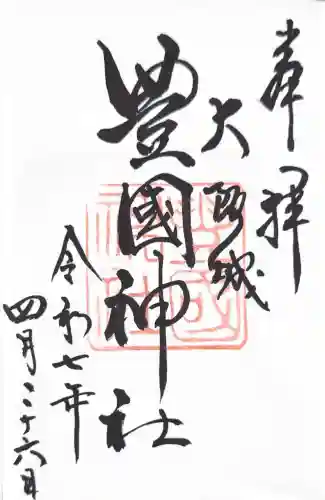 奉拝
大阪城
豊國神社
令和七年
四月二十六日